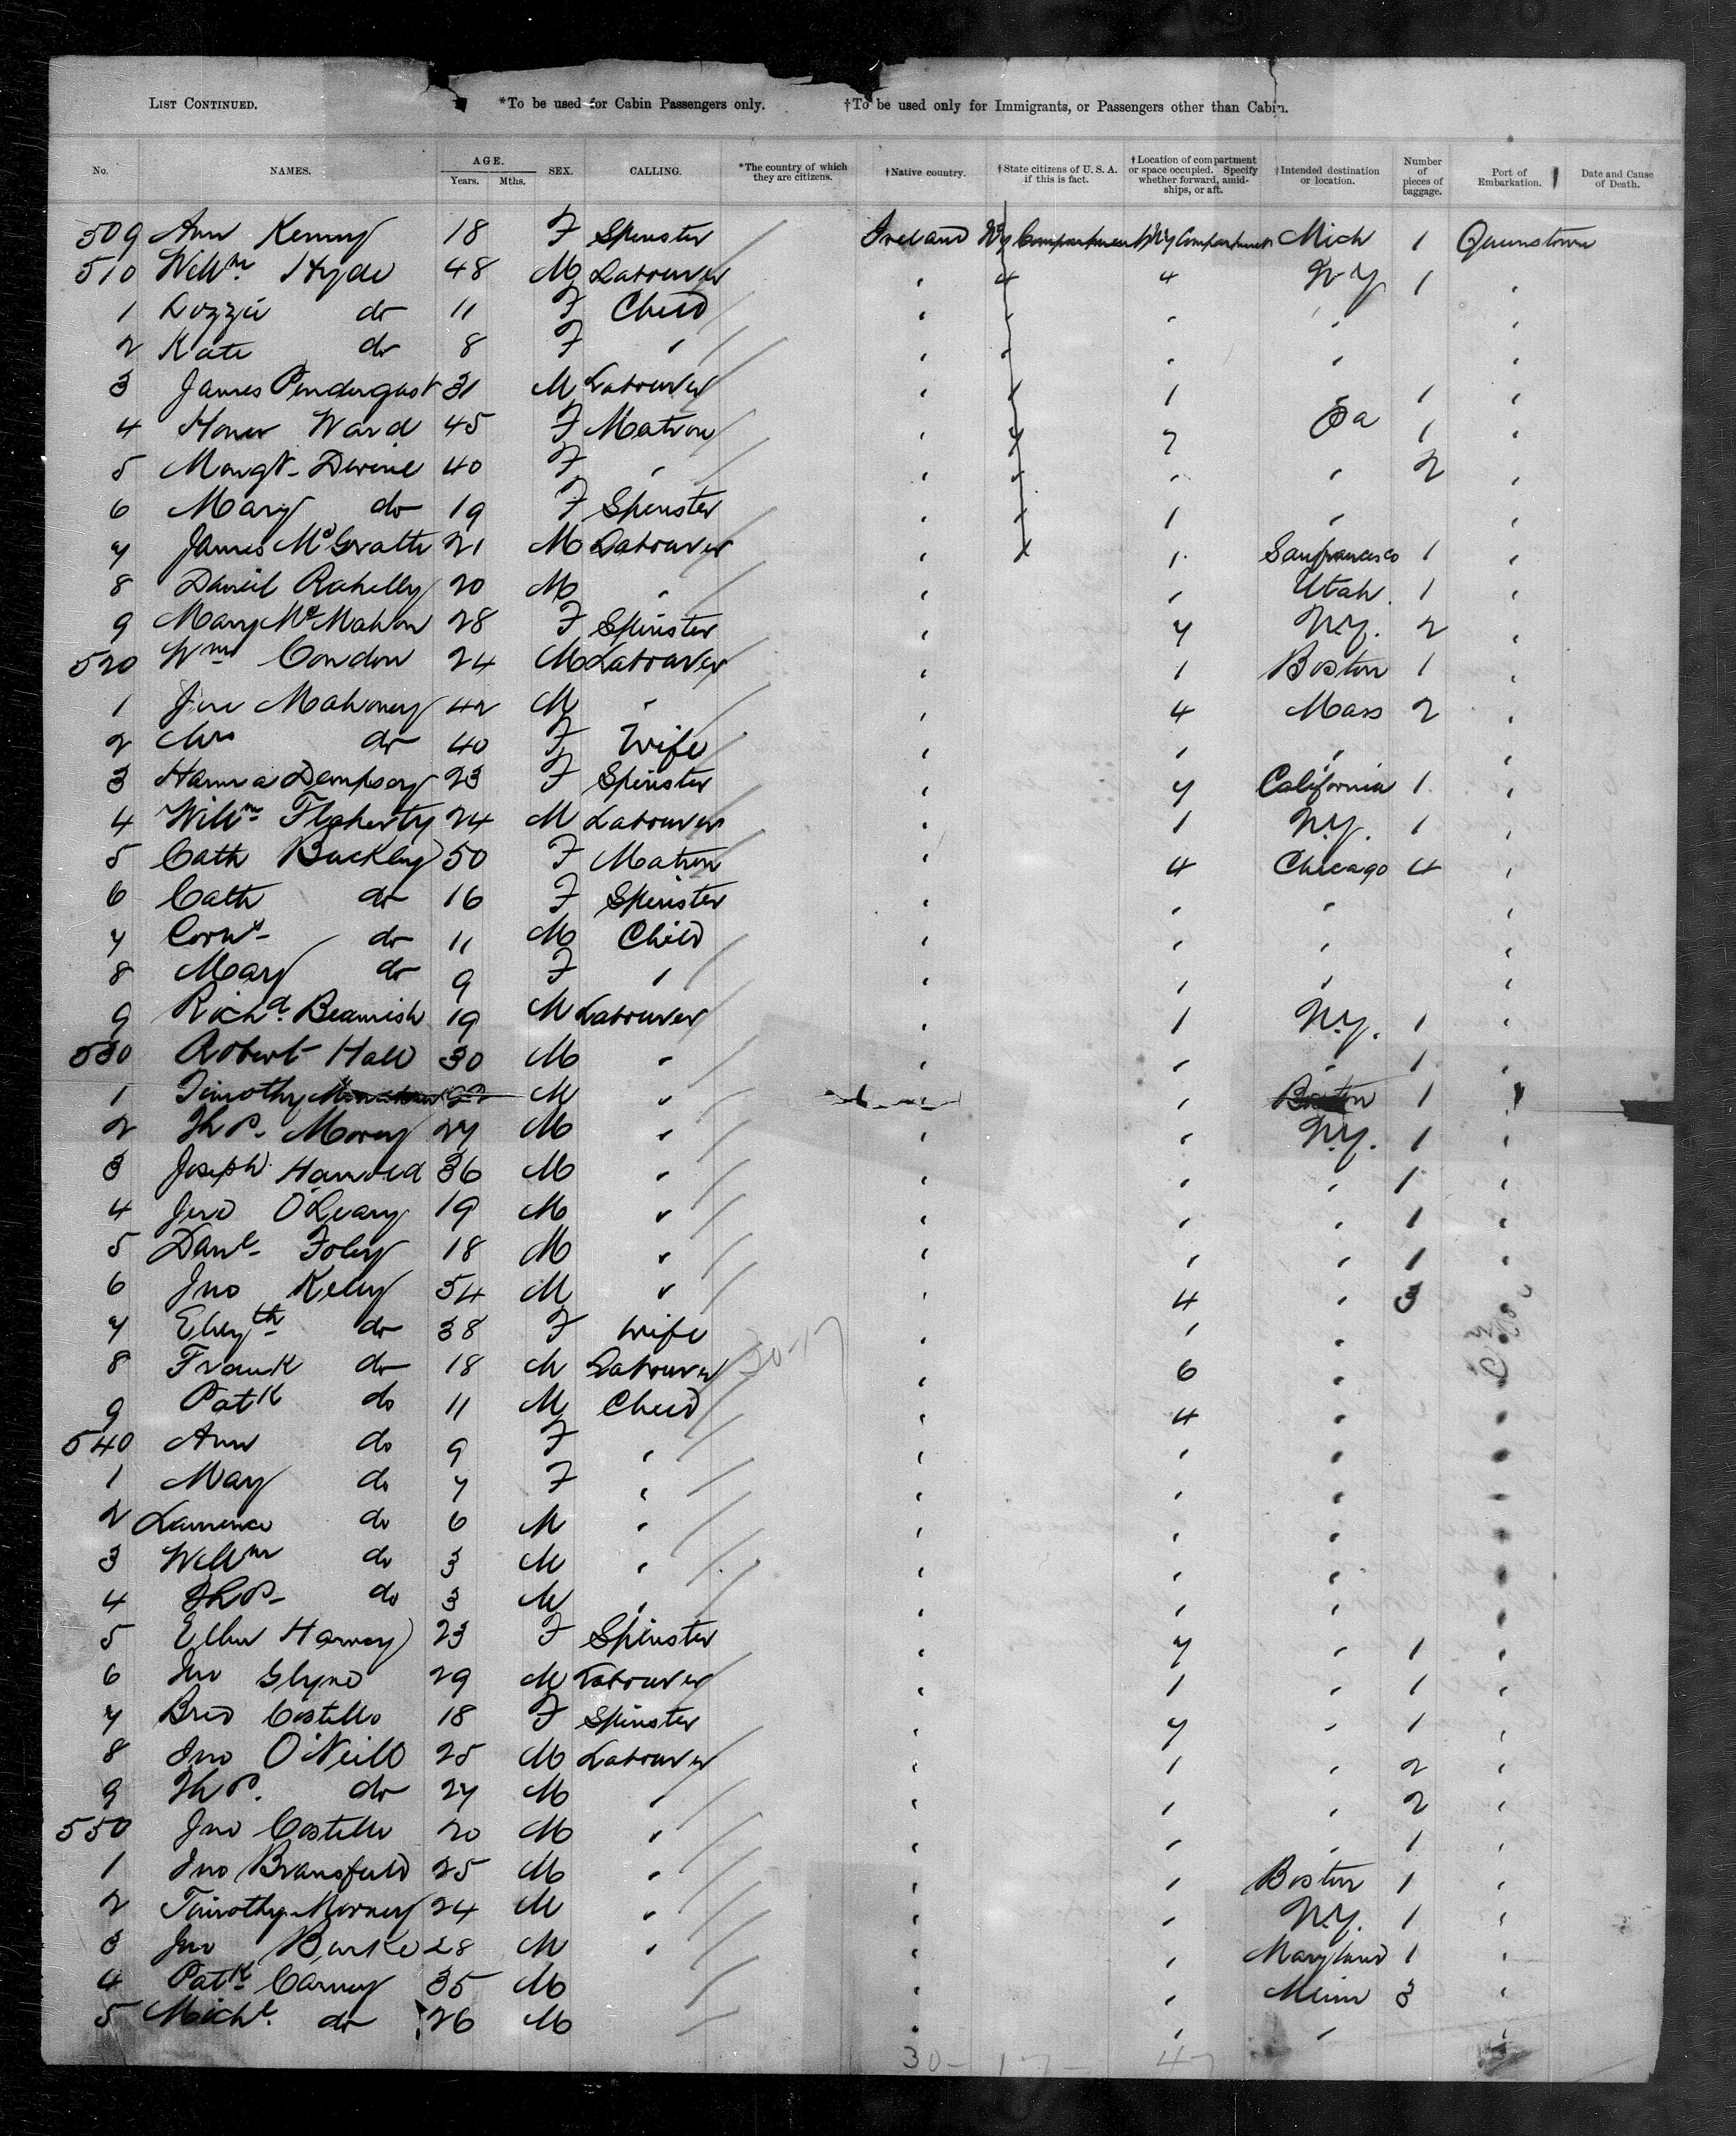 List Continued. *To be used for Cabin Passengers only. †To be used only for Immigrants, or Passengers other than Cabin.
No. NAMES. AGE. Years. Mths. SEX. CALLING. *The country of which they are citizens. †Native country. †State citizens of U. S. A. if this is fact. †Location of compartment or space occupied. Specify whether forward, amidships, or aft. †Intended destination or location. Number of pieces of baggage. Port of Embarkation. Date and Cause of Death.
509 Ann Kenny 18 F Spinster Ireland No 7 Compartment No 7 Compartment Mich 1 Queenstown
510 Willm Hyde 48 M Labourer " 4 4 N Y 1 "
1 Lizzie do 11 F Child " " " " "
2 Kate do 8 F " " " " " "
3 James Pendergast 31 M Labourer " 1 1 " 1 "
4 Honor Ward 45 F Matron " 7 7 Pa 1 "
5 Margt Devine 40 F " " " " " 2 "
6 Mary do 19 F Spinster " 1 1 " "
7 James McGrath 21 M Labourer " 1 1 Sanfrancisco 1 "
8 Daniel Rahelly 20 M " " " Utah 1 "
9 Mary McMahon 28 F Spinster " 7 N.Y. 2 "
520 Wm Condon 24 M Labourer " 1 Boston 1 "
1 Jere Mahoney 42 M " " 4 Mass 2 "
2 Mrs do 40 F Wife " " " "
3 Hanna Dempsey 23 F Spinster " 7 California 1 "
4 Willm Flaherty 24 M Labourer " 1 N.Y. 1 "
5 Cath Buckley 50 F Matron " 4 Chicago 4 "
6 Cath do 16 F Spinster " " " "
7 Corns do 11 M Child " " " "
8 Mary do 9 F " " " " "
9 Richd Beamish 19 M Labourer " 1 N.Y. 1 "
530 Robert Hall 30 M " " " " 1 "
1 Timothy 22 M " " " Boston 1 "
2 Thos. Morey 27 M " " " N.Y. 1 "
3 Joseph Harold 36 M " " " " 1 "
4 Jere O'Leary 19 M " " " " 1 "
5 Danl Foley 18 M " " " " 1 "
6 Jno Kelly 54 M " " 4 " 3 "
7 Elizth do 38 F Wife " " "
8 Frank do 18 M Labourer 30-17 " 6 "
9 Patk do 11 M Child " 4 " "
540 Ann do 9 F " " " " "
1 Mary do 7 F " " " " "
2 Lawrence do 6 M " " " " "
3 Willm do 3 M " " " " "
4 Thos do 3 M " " " " "
5 Ellen Harvey 23 F Spinster " 7 " 1 "
6 Jno Glynn 29 M Labourer " 1 " 1 "
7 Brid Costello 18 F Spinster " 7 " 1 "
8 Jno O'Neill 25 M Labourer " 1 " 2 "
9 Thos. do 27 M " " " " 2 "
550 Jno Costello 20 M " " " " 1 "
1 Jno Bransfield 25 M " " " Boston 1 "
2 Timothy 24 M " " " N.Y. 1 "
3 Jno Burke 28 M " " " Maryland 1 "
4 Patk Carney 35 M " " Minn 3 "
5 Michl do 26 M " " " "
30- 17- 47